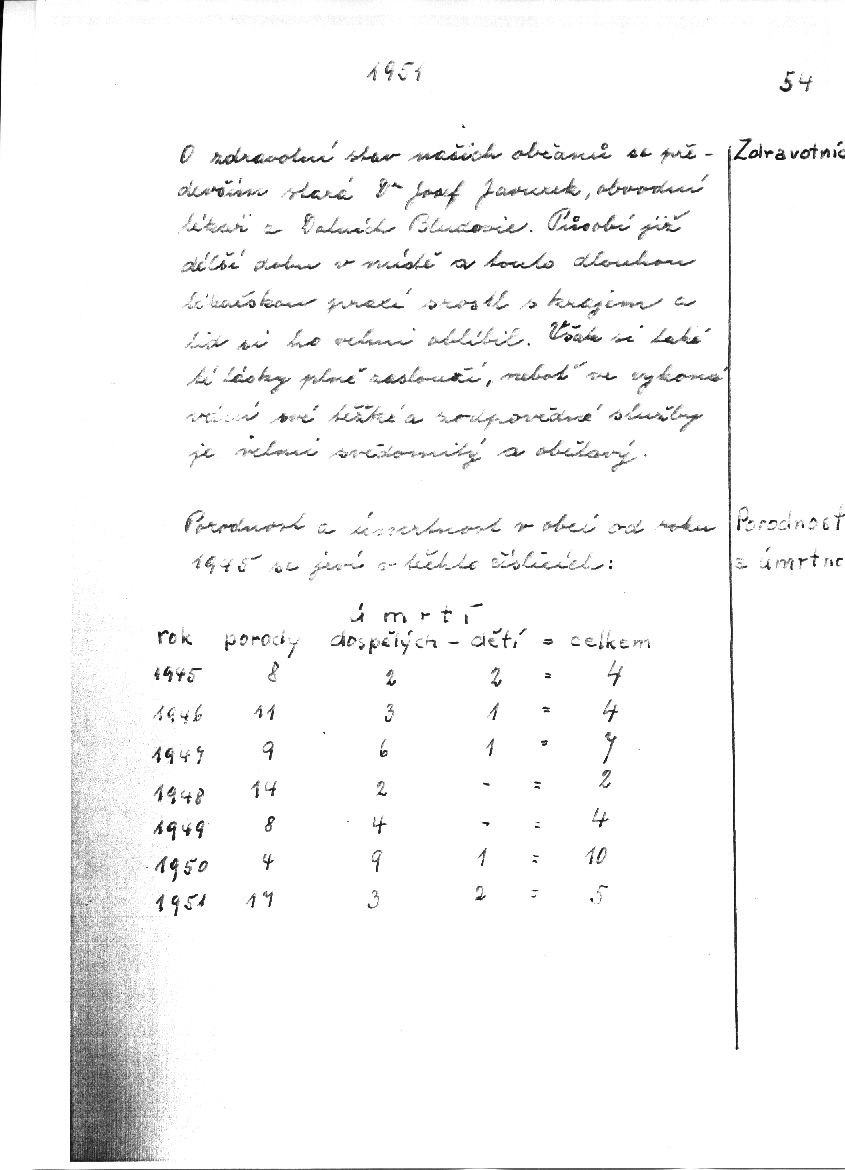 1951
54
O zdravotní stav našich občanů se pře-
Zdravotnic
devším stará Dr Josef Javurek, obvodní
lékař z Dolních Bludovic. Působí již
delší dobu v místě a touto dlouhou
lékařskou prací srostl s krajem a
lid si ho velmi oblíbil. Však si také
té lásky plně zaslouží, neboť ve vykoná
vání své těžké a zodpovědné služby
je velmi svědomitý a obětavý.
Porodnost a úmrtnost v obci od roku
Porodnost
1945 se jeví v těchto číslicích:
a úmrtno
úmrtí
rok porody dospělých - dětí = celkem
1945 8 2 2 = 4
1946 11 3 1 = 4
1947 9 6 1 = 7
1948 14 2 - = 2
1949 8 4 - = 4
1950 4 9 1 = 10
1951 17 3 2 = 5